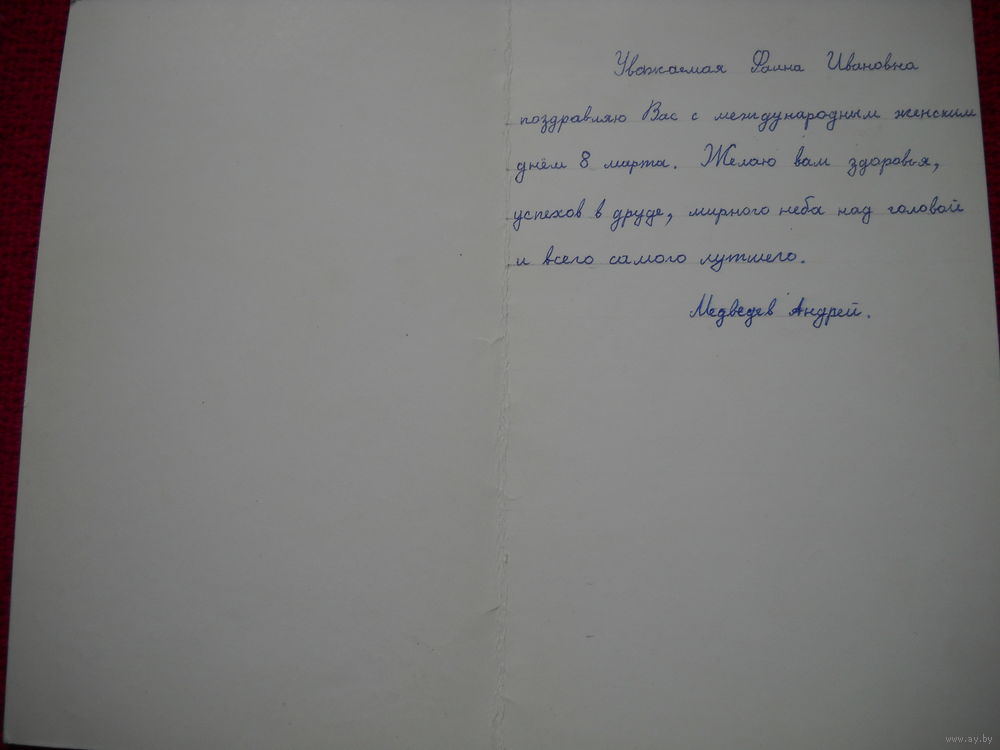 Уважаемая Фаина Ивановна
поздравляю Вас с международным женским
днём 8 марта. Желаю вам здоровья,
успехов в друде, мирного неба над головой
и всего самого лутшего.
Медведев Андрей.
www.ay.by